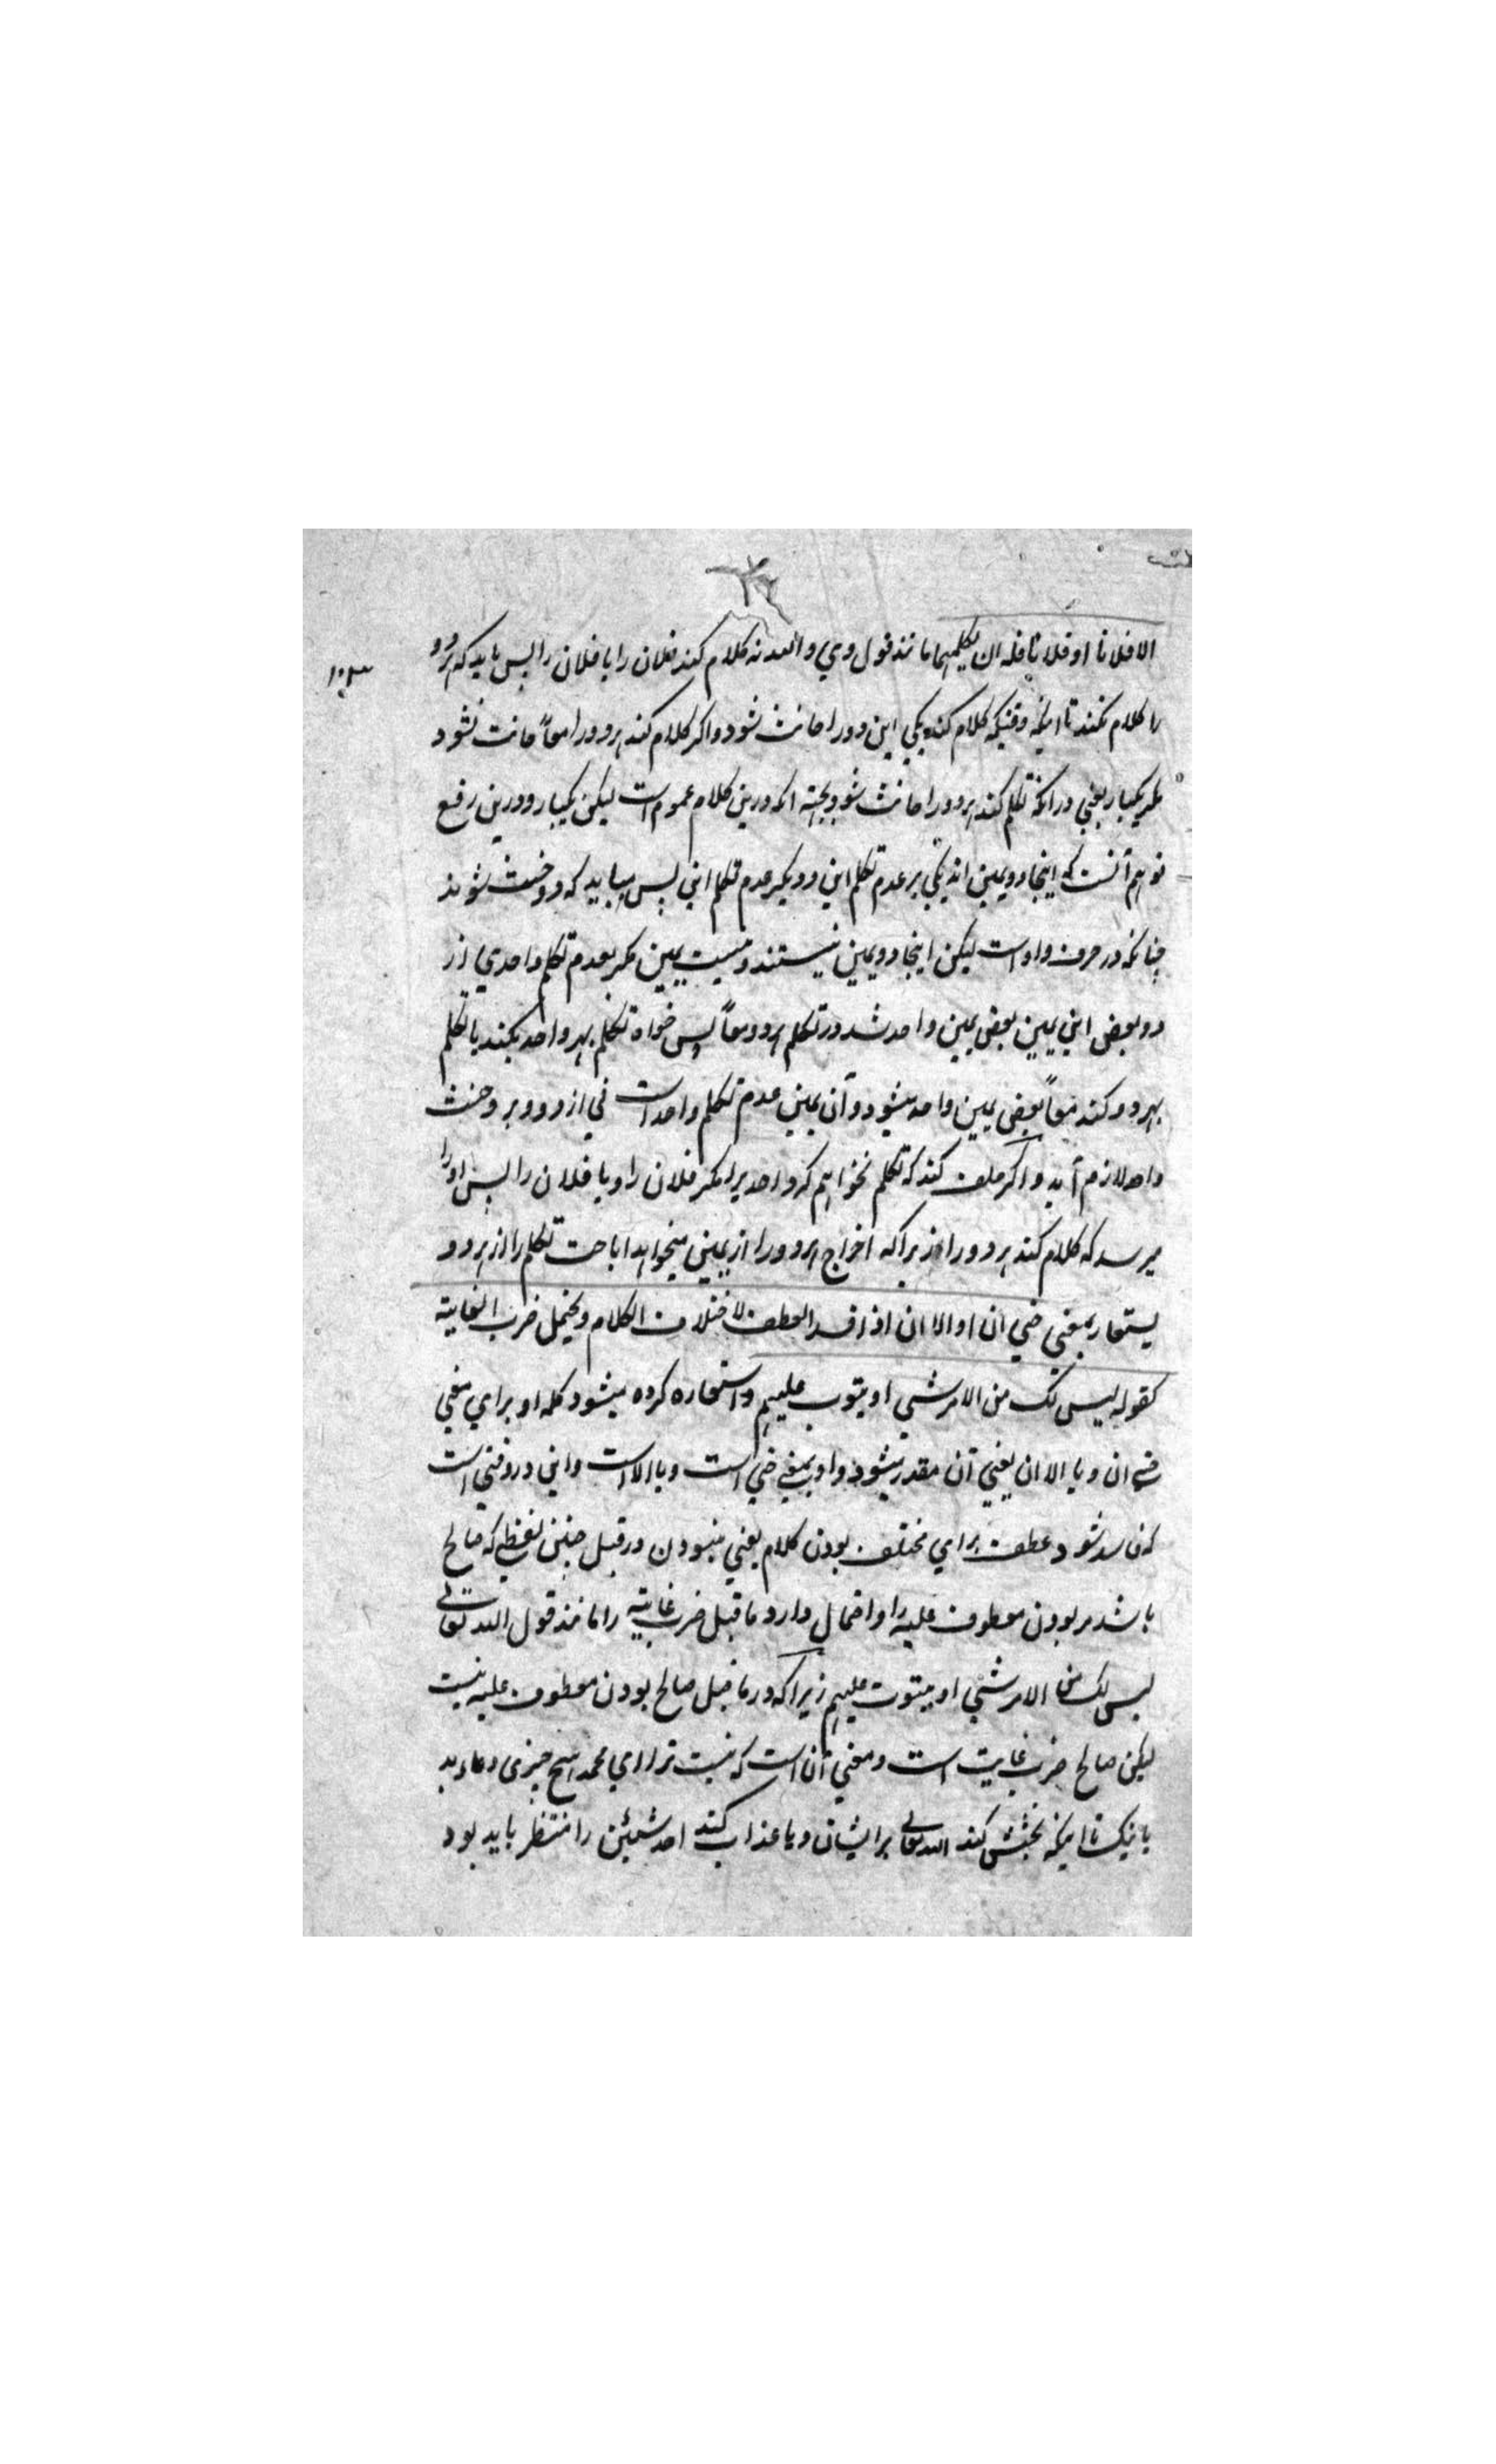 الا فلانا او فلانا فله ان یکلمهما مانند قول وی والله نه کلام کند فلان را یا فلان را پس باید که هر دو
را کلام نکند تا اینکه وقتیکه کلام کند یکی این دو را حانث شود و اکر کلام کند هر دو را معاً حانث نشود
مکر یکبار یعنی درانکه تکلم کند هر دو را حانث شود بجهة انکه درین کلام عموم است لیکن یکبار و درین رفع
توهم آنست که اینجا دو یمین اند یکی بر عدم تکلم این و دیکر عدم تکلم این پس میباید که دو حنث شوند
چنانکه در حرف واو است لیکن اینجا دو یمین نیستند و نیست یمین مکر بعدم تکلم واحدی از
دو بعض این یمین بعض یمین واحد شد در تکلم هر دو معاً پس خواه تکلم بهر واحد بکند یا تکلم
بهر دو کند معاً بعض یمین واحد میشود و آن یمین عدم تکلم واحد است فی از دو و برو حنث
واحد لازم آید و اکر حلف کند که تکلم نخواهم کرد احدیرا مکر فلان را و یا فلان را پس او را
میرسد که کلام کند هر دو را زیراکه اخراج هر دو را از یمین میخواهد اباحت تکلم را از هر دو
یستعار بمعنی حتی ان او الا ان اذا فسد العطف لاختلاف الکلام ویحتمل ضرب الغایة
کقوله لیس لک من الامر شیی او یتوب علیهم و استعاره کرده میشود کلمه او برای معنی
حتی ان و یا الا ان یعنی آن مقدر میشود و او بمعنی حتی است و یا الا است و این در وقتی است
که فاسد شود عطف برای مختلف بودن کلام یعنی نبودن در قبل چنین لفظی که صالح
باشد مر بودن معطوف علیه را و احتمال دارد ما قبل ضرب غایة را مانند قول الله تعالی
لیس لک من الامر شیی او یتوب علیهم زیراکه در ما قبل صالح بودن معطوف علیه نیست
لیکن صالح ضرب غایت است و معنی آن است که نیست ترا ای محمد هیچ چیزی دعاء بد
یا نیک تا اینکه بخشش کند الله تعالی بر ایشان و یا عذاب کند احد شیئین را منتظر باید بود